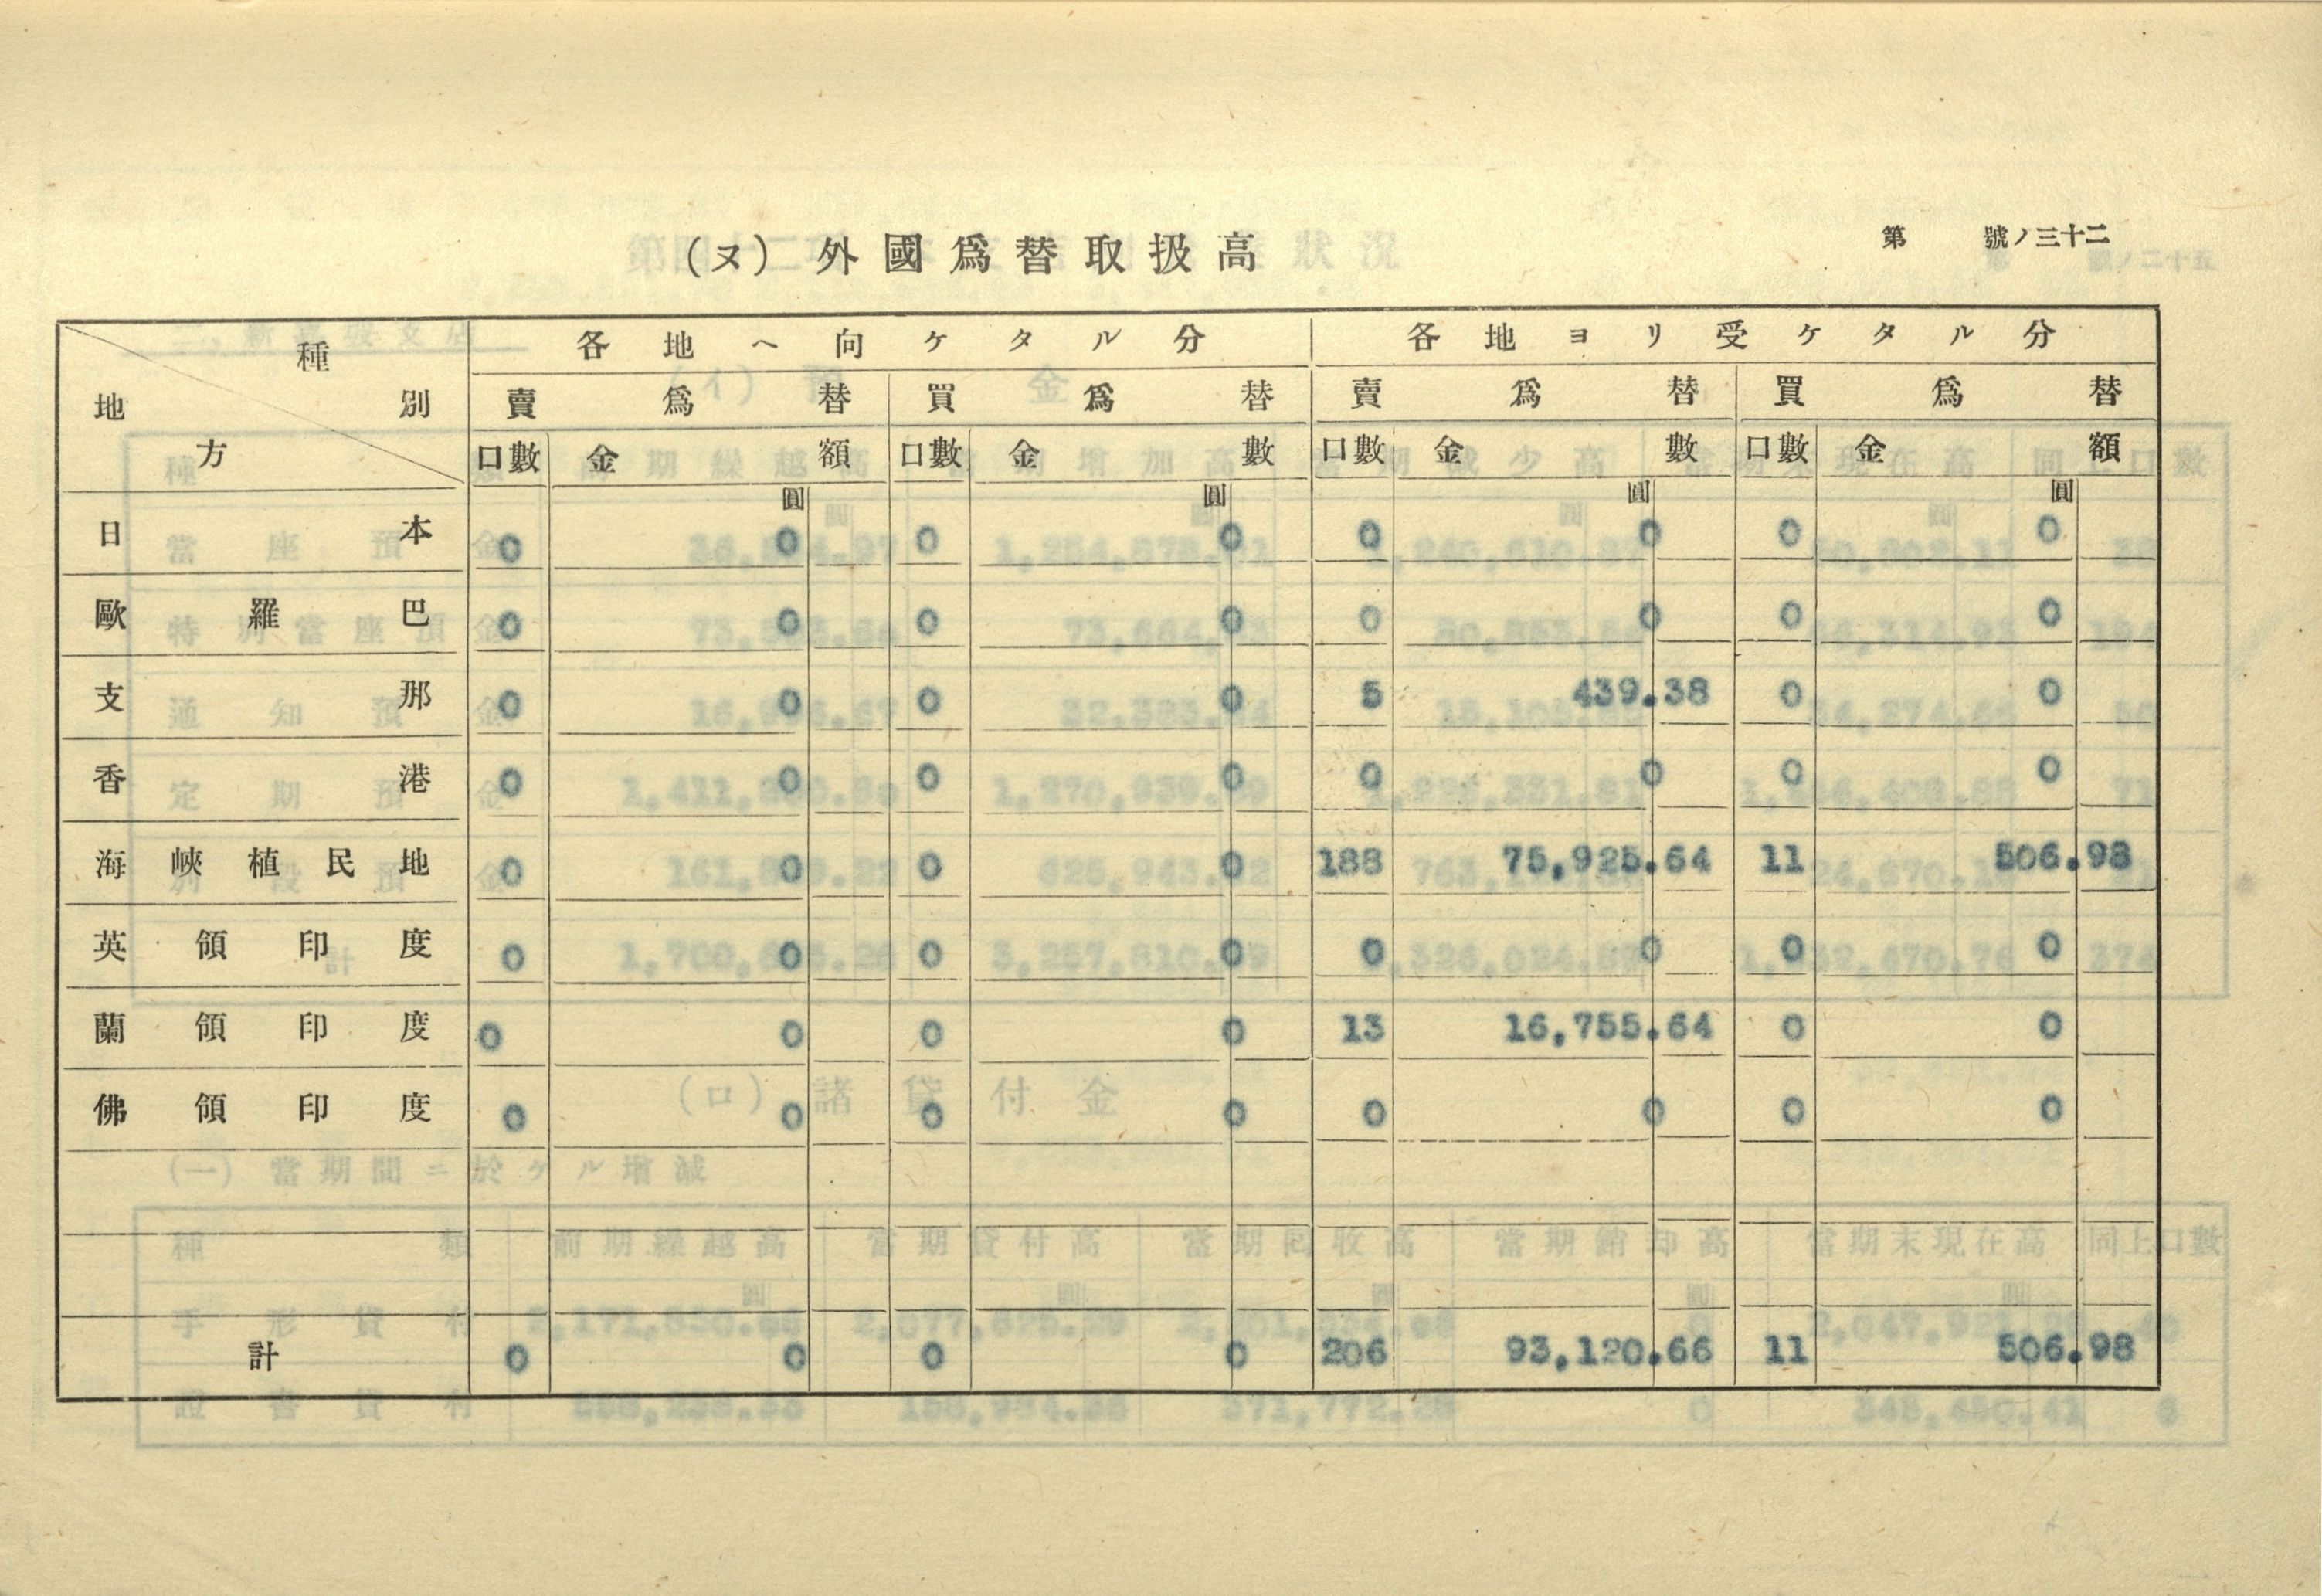 第 號ノ三十二
(ヌ) 外國爲替取扱高
種別 地方 各地ヘ向ケタル分 各地ヨリ受ケタル分
賣爲替 買爲替 賣爲替 買爲替
口數 金額 口數 金數 口數 金數 口數 金額
圓 圓 圓 圓
日本 0 0 0 0 0 0 0 0
歐羅巴 0 0 0 0 0 0 0 0
支那 0 0 0 0 5 439.38 0 0
香港 0 0 0 0 0 0 0 0
海峽植民地 0 0 0 0 188 75,925.64 11 506.98
英領印度 0 0 0 0 0 0 0 0
蘭領印度 0 0 0 0 13 16,755.64 0 0
佛領印度 0 0 0 0 0 0 0 0
計 0 0 0 0 206 93,120.66 11 506.98